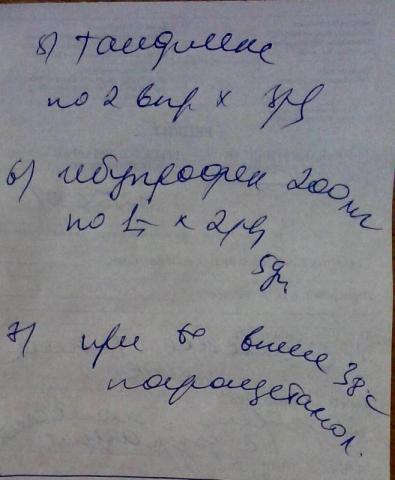 5) Танфлекс
по 2 впр x 3р/д
6) ибупрофен 200мг
по 1т x 2р/д
5дн
7) при t° выше 38°C
парацетамол.